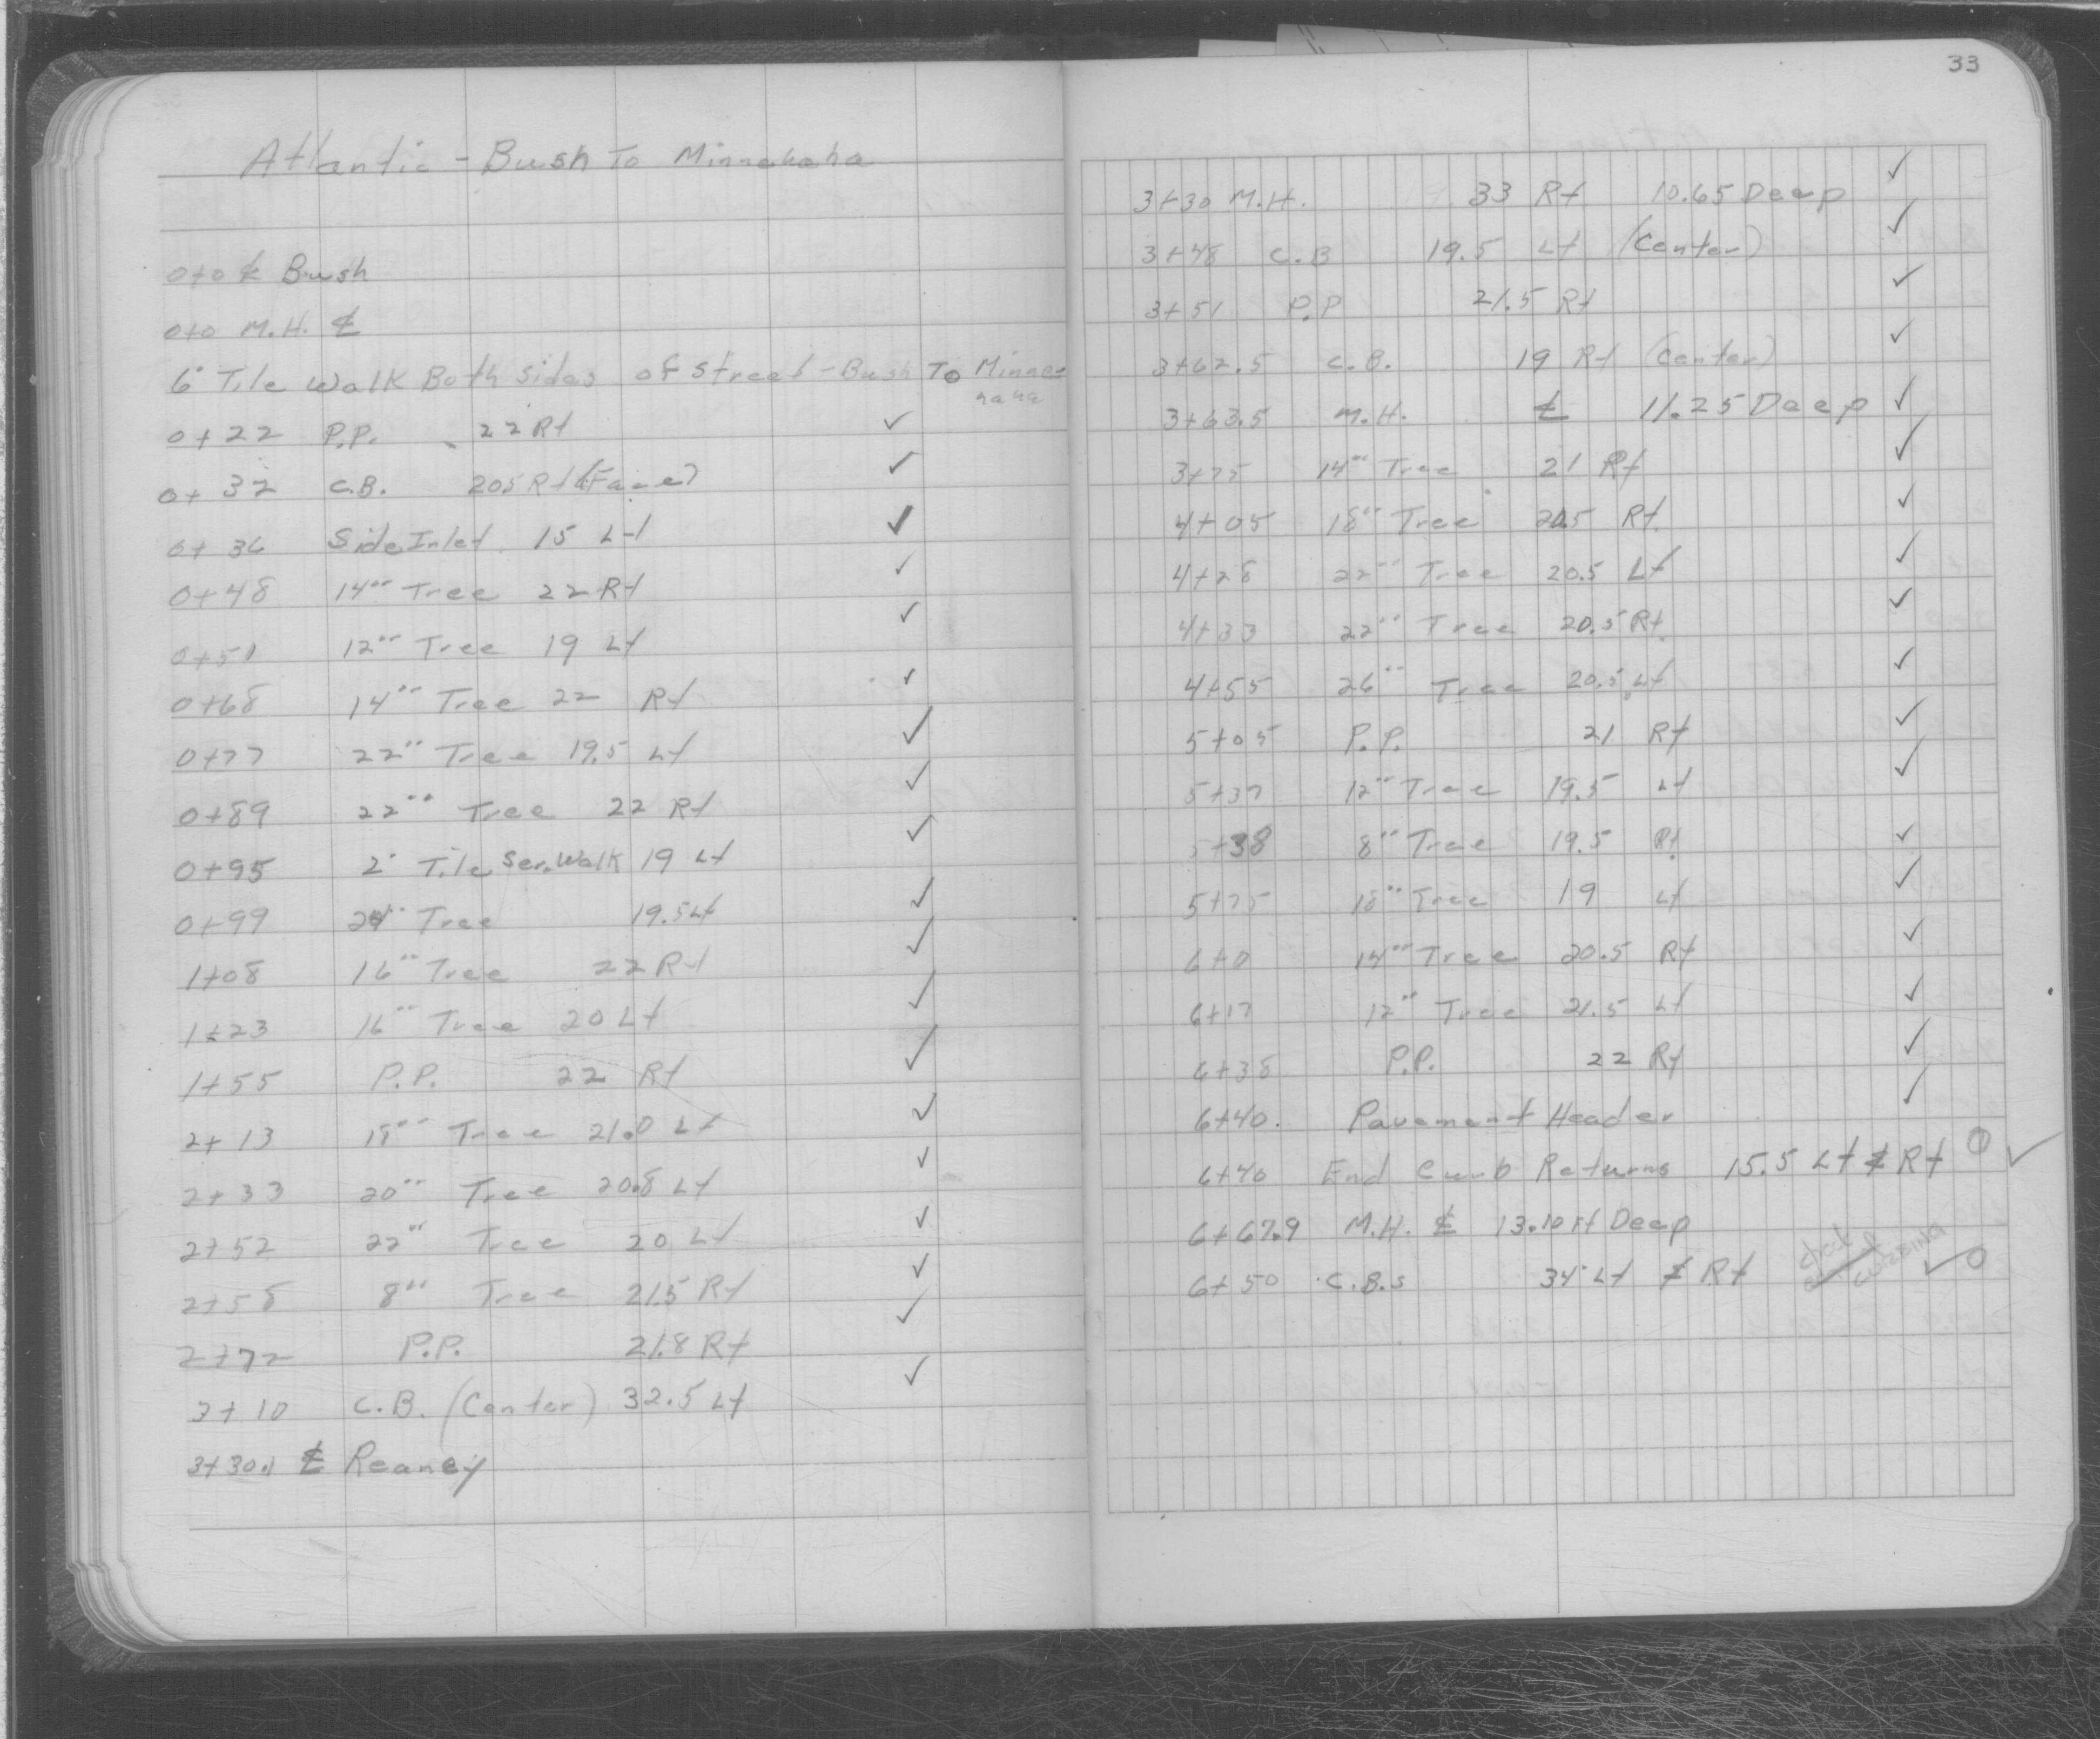 Atlantic - Bush To Minnehaha
0+0 ℄ Bush
0+0 M.H. ℄
6' Tile Walk Both sides of street - Bush To Minne-
haha
0+22 P.P. 22 Rt ✓
0+32 C.B. 20.5 Rt (Face) ✓
0+36 Side Inlet 15 Lt ✓
0+48 14"" Tree 22 Rt ✓
0+51 12"" Tree 19 Lt ✓
0+68 14"" Tree 22 Rt ✓
0+77 22"" Tree 19.5 Lt ✓
0+89 22"" Tree 22 Rt ✓
0+95 2' Tile Ser. Walk 19 Lt ✓
0+99 24"" Tree 19.5 Lt ✓
1+08 16"" Tree 22 Rt ✓
1+23 16"" Tree 20 Lt ✓
1+55 P.P. 22 Rt ✓
2+13 18"" Tree 21.0 Lt ✓
2+33 20"" Tree 20.8 Lt ✓
2+52 22"" Tree 20 Lt ✓
2+58 8"" Tree 21.5 Rt ✓
2+72 P.P. 21.8 Rt ✓
3+10 C.B. (Center) 32.5 Lt ✓
3+30.1 ℄ Reaney
33
3+30 M.H. 33 Rt 10.65 Deep ✓
3+48 C.B 19.5 Lt (Center) ✓
3+51 P.P 21.5 Rt ✓
3+62.5 C.B. 19 Rt (Center) ✓
3+63.5 M.H. ℄ 11.25 Deep ✓
3+75 14"" Tree 21 Rt ✓
4+05 18"" Tree 20.5 Rt. ✓
4+28 22"" Tree 20.5 Lt ✓
4+33 22"" Tree 20.5 Rt. ✓
4+55 26"" Tree 20.5 Lt ✓
5+05 P.P. 21 Rt ✓
5+37 12"" Tree 19.5 Lt ✓
5+38 8"" Tree 19.5 Rt ✓
5+75 18"" Tree 19 Lt ✓
6+0 14"" Tree 20.5 Rt ✓
6+17 12"" Tree 21.5 Lt ✓
6+38 P.P. 22 Rt ✓
6+40. Pavement Header ✓
6+40 End Curb Returns 15.5 Lt & Rt ✓
6+67.9 M.H. ℄ 13.10 Ft Deep
6+50 C.B.s 34' Lt & Rt ✓